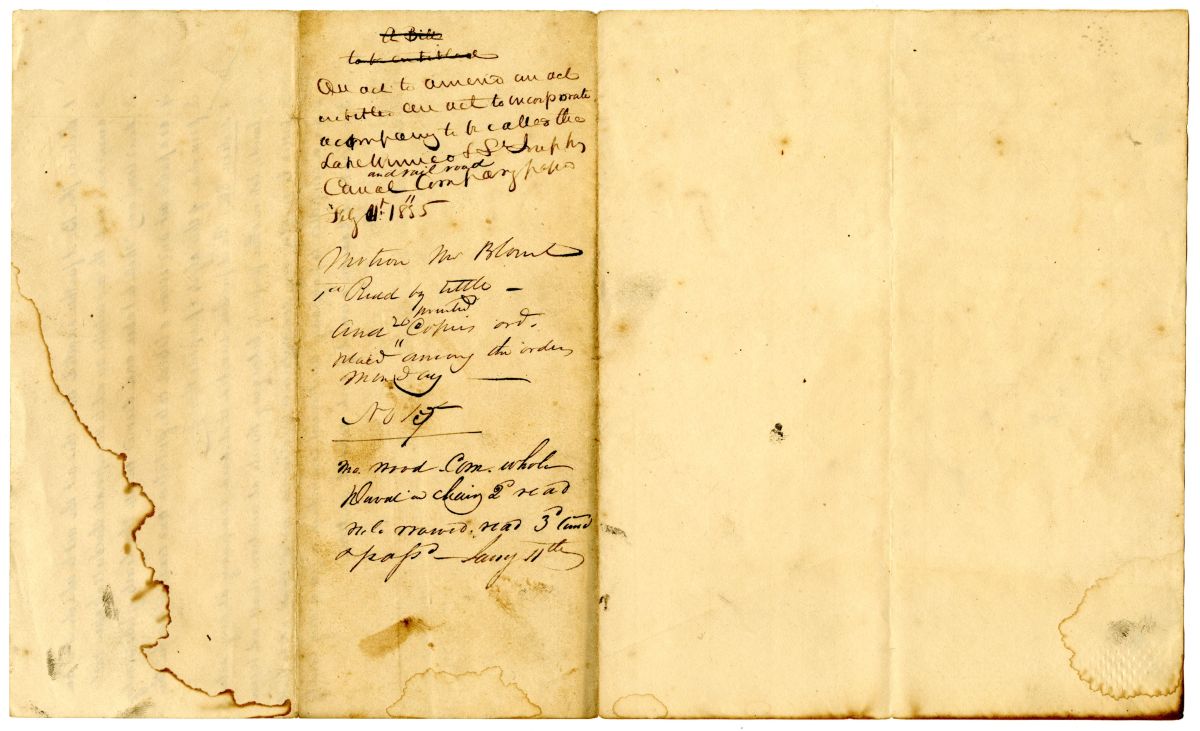 A Bill
to be entitled
An act to amend an act
entitled an act to incorporate
a company to be called the
Lake Wimico & St Josephs
and rail road
Canal Company
Feby 1835
Motion Mr Blount
1st Read by tittle —
printed
And 20 Copies ord.
placed among the orders
Monday —
No 15
Mr. Wood Com. whole
Duval in Chair 2d read
rule waived. read 3d time
& passd — Jany 11th